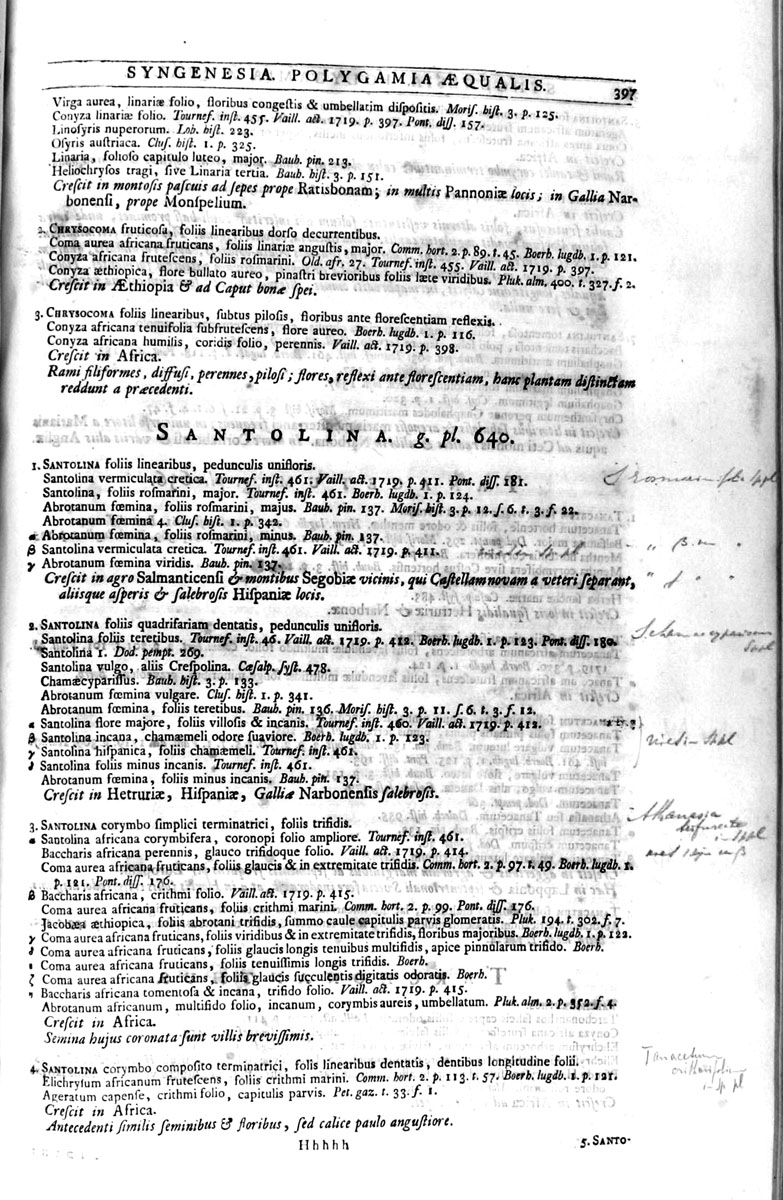 SYNGENESIA. POLYGAMIA ÆQUALIS. 397
Virga aurea, linariæ folio, floribus congestis & umbellatim dispositis. Moris. hist. 3. p. 125.
Conyza linariæ folio. Tournef. inst. 455. Vaill. act. 1719. p. 397. Pont. diss. 157.
Linosyris nuperorum. Lob. hist. 223.
Osyris austriaca. Clus. hist. 1. p. 325.
Linaria, folioso capitulo luteo, major. Bauh. pin. 213.
Heliochrysos tragi, sive Linaria tertia. Bauh. hist. 3. p. 151.
Crescit in montosis pascuis ad sepes prope Ratisbonam; in multis Pannoniæ locis; in Gallia Nar-
bonensi, prope Monspelium.
2. CHRYSOCOMA fruticosa, foliis linearibus dorso decurrentibus.
Coma aurea africana fruticans, foliis linariæ angustis, major. Comm. hort. 2. p. 89. t. 45. Boerh. lugdb. 1. p. 121.
Conyza africana frutescens, foliis rosmarini. Old. afr. 27. Tournef. inst. 455. Vaill. act. 1719. p. 397.
Conyza æthiopica, flore bullato aureo, pinastri brevioribus foliis læte viridibus. Pluk. alm. 400. t. 327. f. 2.
Crescit in Æthiopia & ad Caput bonæ spei.
3. CHRYSOCOMA foliis linearibus, subtus pilosis, floribus ante florescentiam reflexis.
Conyza africana tenuifolia subfrutescens, flore aureo. Boerh. lugdb. 1. p. 116.
Conyza africana humilis, coridis folio, perennis. Vaill. act. 1719. p. 398.
Crescit in Africa.
Rami filiformes, diffusi, perennes, pilosi; flores, reflexi ante florescentiam, hanc plantam distinctam
reddunt a præcedenti.
SANTOLINA. g. pl. 640.
1. SANTOLINA foliis linearibus, pedunculis unifloris.
Santolina vermiculata cretica. Tournef. inst. 461. Vaill. act. 1719. p. 411. Pont. diss. 181.
Santolina, foliis rosmarini, major. Tournef. inst. 461. Boerh. lugdb. 1. p. 124.
Abrotanum fœmina, foliis rosmarini, majus. Bauh. pin. 137. Moris. hist. 3. p. 12. s. 6. t. 3. f. 22.
Abrotanum fœmina 4. Clus. hist. 1. p. 342.
α Abrotanum fœmina, foliis rosmarini, minus. Bauh. pin. 137.
β Santolina vermiculata cretica. Tournef. inst. 461. Vaill. act. 1719. p. 411.
γ Abrotanum fœmina viridis. Bauh. pin. 137.
Crescit in agro Salmanticensi & montibus Segobiæ vicinis, qui Castellam novam a veteri separant,
aliisque asperis & salebrosis Hispaniæ locis.
2. SANTOLINA foliis quadrifariam dentatis, pedunculis unifloris.
Santolina foliis teretibus. Tournef. inst. 46. Vaill. act. 1719. p. 412. Boerh. lugdb. 1. p. 123. Pont. diss. 180.
Santolina 1. Dod. pempt. 269.
Santolina vulgo, aliis Crespolina. Cæsalp. syst. 478.
Chamæcyparissus. Bauh. hist. 3. p. 133.
Abrotanum fœmina vulgare. Clus. hist. 1. p. 341.
Abrotanum fœmina, foliis teretibus. Bauh. pin. 136. Moris. hist. 3. p. 11. s. 6. t. 3. f. 12.
α Santolina flore majore, foliis villosis & incanis. Tournef. inst. 460. Vaill. act. 1719. p. 412.
β Santolina incana, chamæmeli odore suaviore. Boerh. lugdb. 1. p. 123.
γ Santolina hispanica, foliis chamæmeli. Tournef. inst. 461.
δ Santolina foliis minus incanis. Tournef. inst. 461.
Abrotanum fœmina, foliis minus incanis. Bauh. pin. 137.
Crescit in Hetruriæ, Hispaniæ, Galliæ Narbonensis salebrosis.
3. SANTOLINA corymbo simplici terminatrici, foliis trifidis.
α Santolina africana corymbifera, coronopi folio ampliore. Tournef. inst. 461.
Baccharis africana perennis, glauco trifidoque folio. Vaill. act. 1719. p. 414.
Coma aurea africana fruticans, foliis glaucis & in extremitate trifidis. Comm. hort. 2. p. 97. t. 49. Boerh. lugdb. 1.
p. 121. Pont. diss. 176.
β Baccharis africana, crithmi folio. Vaill. act. 1719. p. 415.
Coma aurea africana fruticans, foliis crithmi marini. Comm. hort. 2. p. 99. Pont. diss. 176.
Jacobæa æthiopica, foliis abrotani trifidis, summo caule capitulis parvis glomeratis. Pluk. 194. t. 302. f. 7.
γ Coma aurea africana fruticans, foliis viridibus & in extremitate trifidis, floribus majoribus. Boerh. lugdb. 1. p. 122.
δ Coma aurea africana fruticans, foliis glaucis longis tenuibus multifidis, apice pinnularum trifido. Boerh.
ε Coma aurea africana fruticans, foliis tenuissimis longis trifidis. Boerh.
ζ Coma aurea africana fruticans, foliis glaucis succulentis digitatis odoratis. Boerh.
η Baccharis africana tomentosa & incana, trifido folio. Vaill. act. 1719. p. 415.
Abrotanum africanum, multifido folio, incanum, corymbis aureis, umbellatum. Pluk. alm. 2. p. 352. f. 4.
Crescit in Africa.
Semina hujus coronata sunt villis brevissimis.
4. SANTOLINA corymbo composito terminatrici, foliis linearibus dentatis, dentibus longitudine folii.
Elichrysum africanum frutescens, foliis crithmi marini. Comm. hort. 2. p. 113. t. 57. Boerh. lugdb. 1. p. 121.
Ageratum capense, crithmi folio, capitulis parvis. Pet. gaz. t. 33. f. 1.
Crescit in Africa.
Antecedenti similis seminibus & floribus, sed calice paulo angustiore.
Hhhhh
5. SANTO-